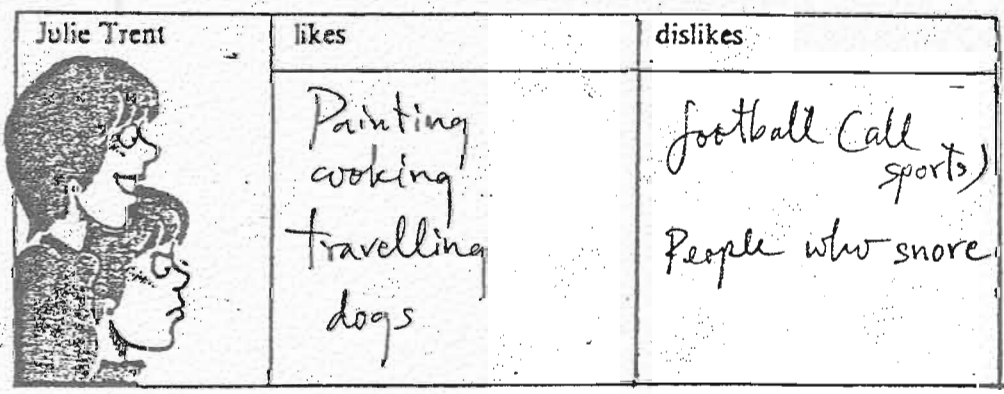 Julie Trent likes dislikes
Painting
cooking
travelling
dogs
football (all
sports)
People who snore